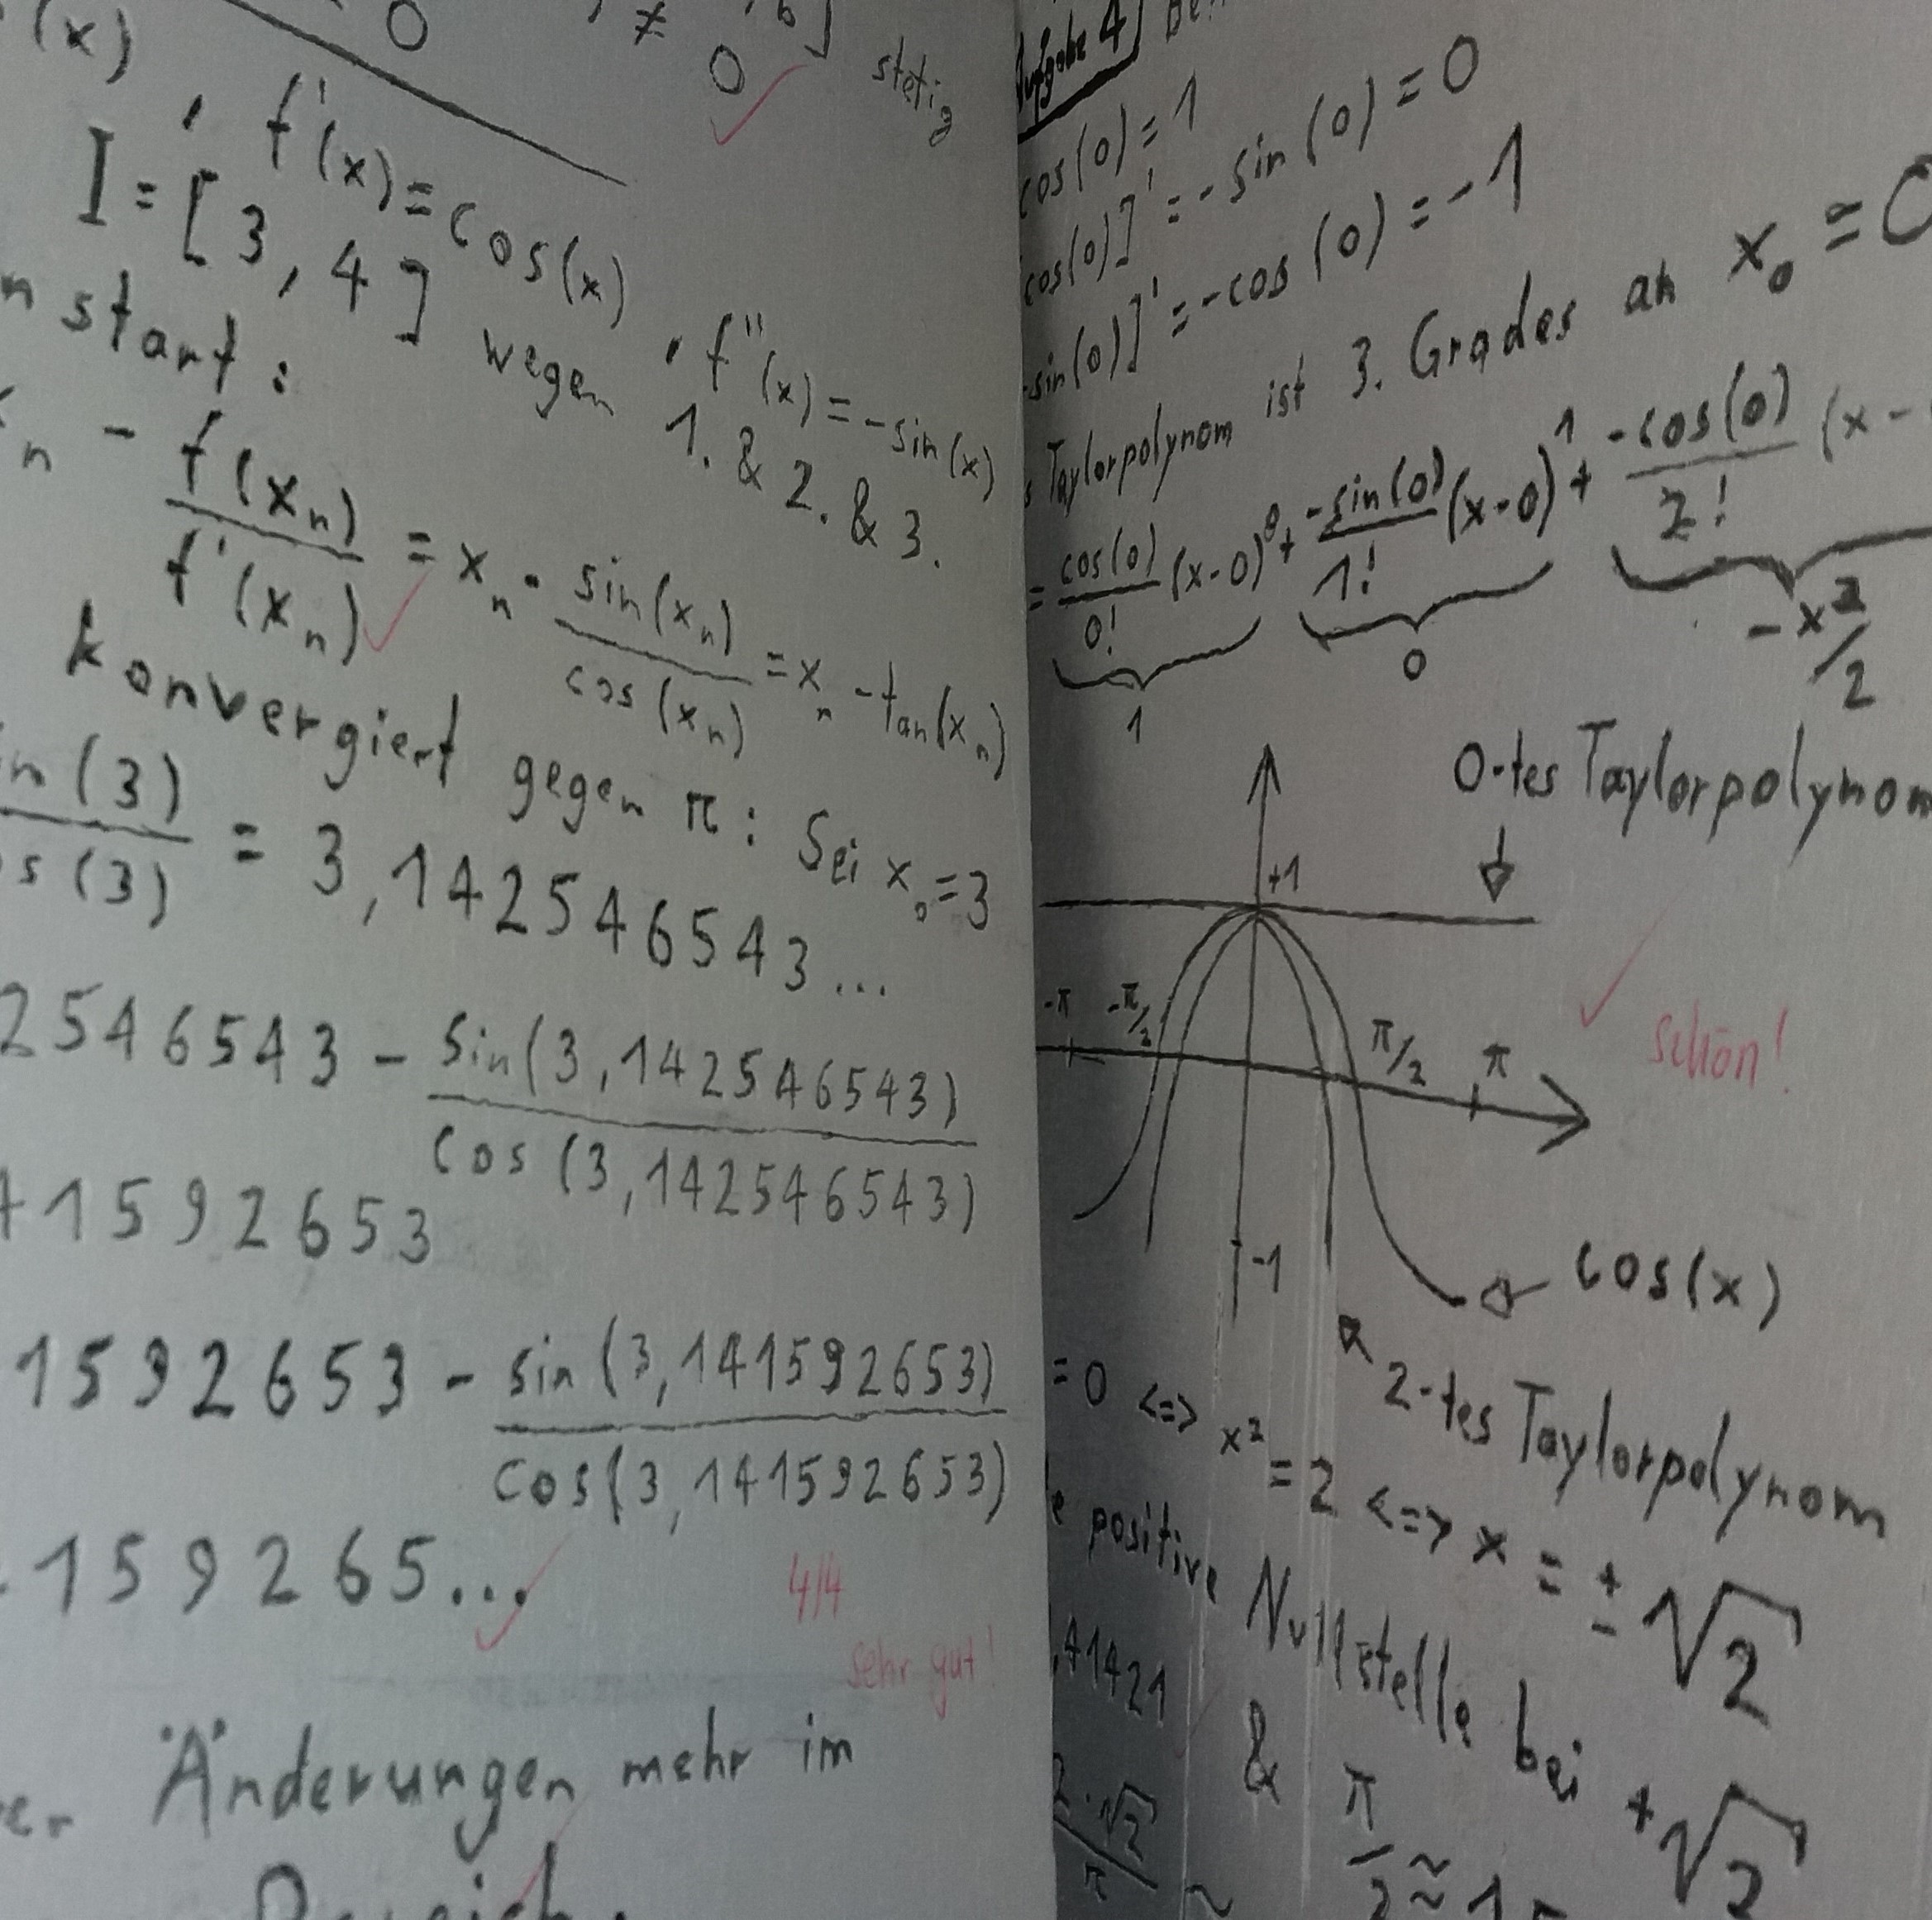 (x)
0
≠
0
stetig
, f'(x) = cos(x) , f''(x) = -sin(x)
I = [3, 4] wegen 1. & 2. & 3.
start:
n - f(xₙ)/f'(xₙ) = xₙ - sin(xₙ)/cos(xₙ) = xₙ - tan(xₙ)
konvergiert gegen π: Sei x₀ = 3
(3)/(3) = 3,142546543...
2546543 - sin(3,142546543)/cos(3,142546543)
1592653
1592653 - sin(3,141592653)/cos(3,141592653)
159265...
4/4
sehr gut!
Änderungen mehr im
Aufgabe 4
cos(0) = 1
cos(0)]' = -sin(0) = 0
-sin(0)]' = -cos(0) = -1
Taylorpolynom ist 3. Grades an x₀ = 0
= cos(0)/0! (x-0)⁰ + -sin(0)/1! (x-0)¹ + -cos(0)/2! (x-
1
0
-x²/2
0-tes Taylorpolynom
+1
-π
-π/2
π/2
π
schön!
-1
cos(x)
2-tes Taylorpolynom
= 0 <=> x² = 2 <=> x = ±√2
positive Nullstelle bei +√2
,41421 & π/2 ≈ 1
2·√2/π ≈